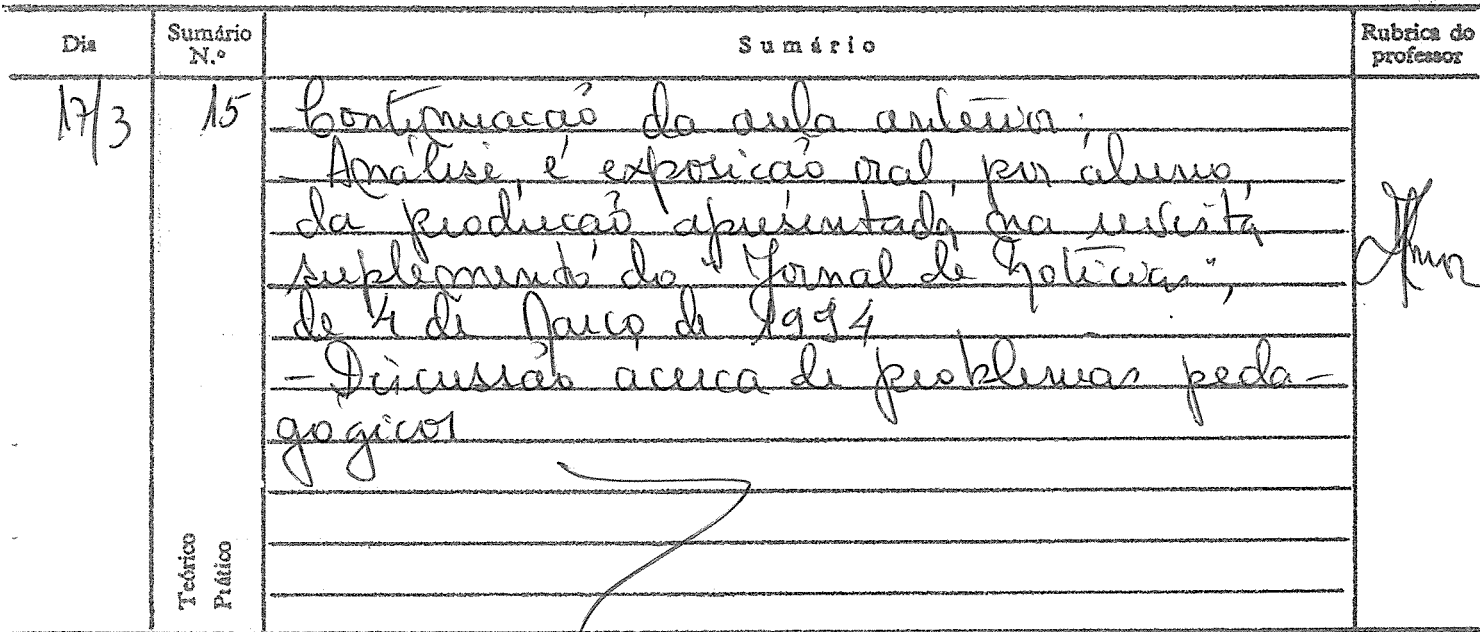 Dia Sumário N.º Sumário Rubrica do professor
17/3 15 Continuação da aula anterior.
- Análise, e exposição oral, por aluno,
da produção apresentada na revista
suplemento do "Jornal de Notícias",
de 4 de Março de 1994
- Discussão acerca de problemas peda-
gógicos
Teórico
Prático